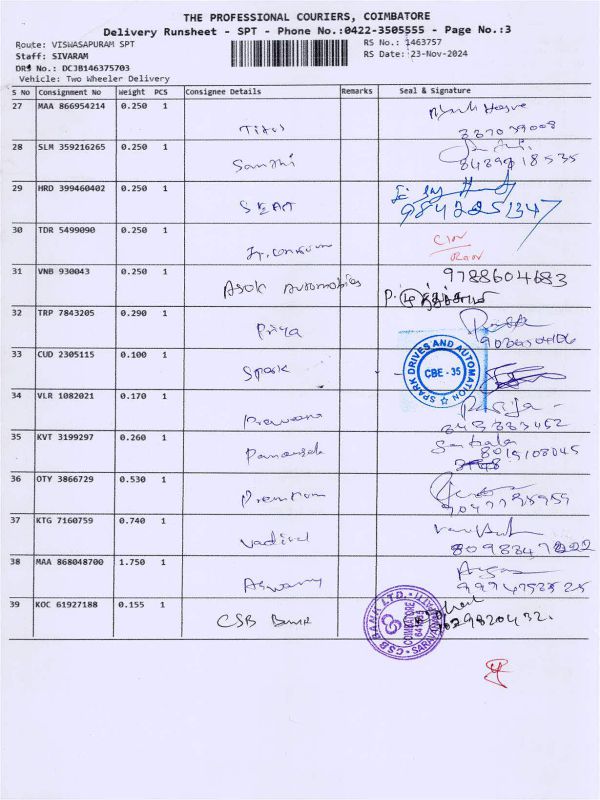 THE PROFESSIONAL COURIERS, COIMBATORE
Delivery Runsheet - SPT - Phone No.:0422-3505555 - Page No.:3
Route: VISWASAPURAM SPT
RS No.: 1463757
Staff: SIVARAM
RS Date: 23-Nov-2024
DRS No.: DCJB146375703
Vehicle: Two Wheeler Delivery
S No Consignment No Weight PCS Consignee Details Remarks Seal & Signature
27 MAA 866954214 0.250 1
Titus
28 SLM 359216265 0.250 1
Sandhi
8439918535
29 HRD 399460402 0.250 1
9842251347
30 TDR 5499090 0.250 1
31 VNB 930043 0.250 1
Asok Automobiles 9788604683
32 TRP 7843205 0.290 1
Priya
33 CUD 2305115 0.100 1
Spark
SPARK DRIVES AND AUTOMATION
CBE - 35
34 VLR 1082021 0.170 1
35 KVT 3199297 0.260 1
8019103045
36 OTY 3866729 0.530 1
Premkum
37 KTG 7160759 0.740 1
Vadivel
38 MAA 868048700 1.750 1
Aswany
39 KOC 61927188 0.155 1
CSB Bank
CSB BANK LTD.
COIMBATORE